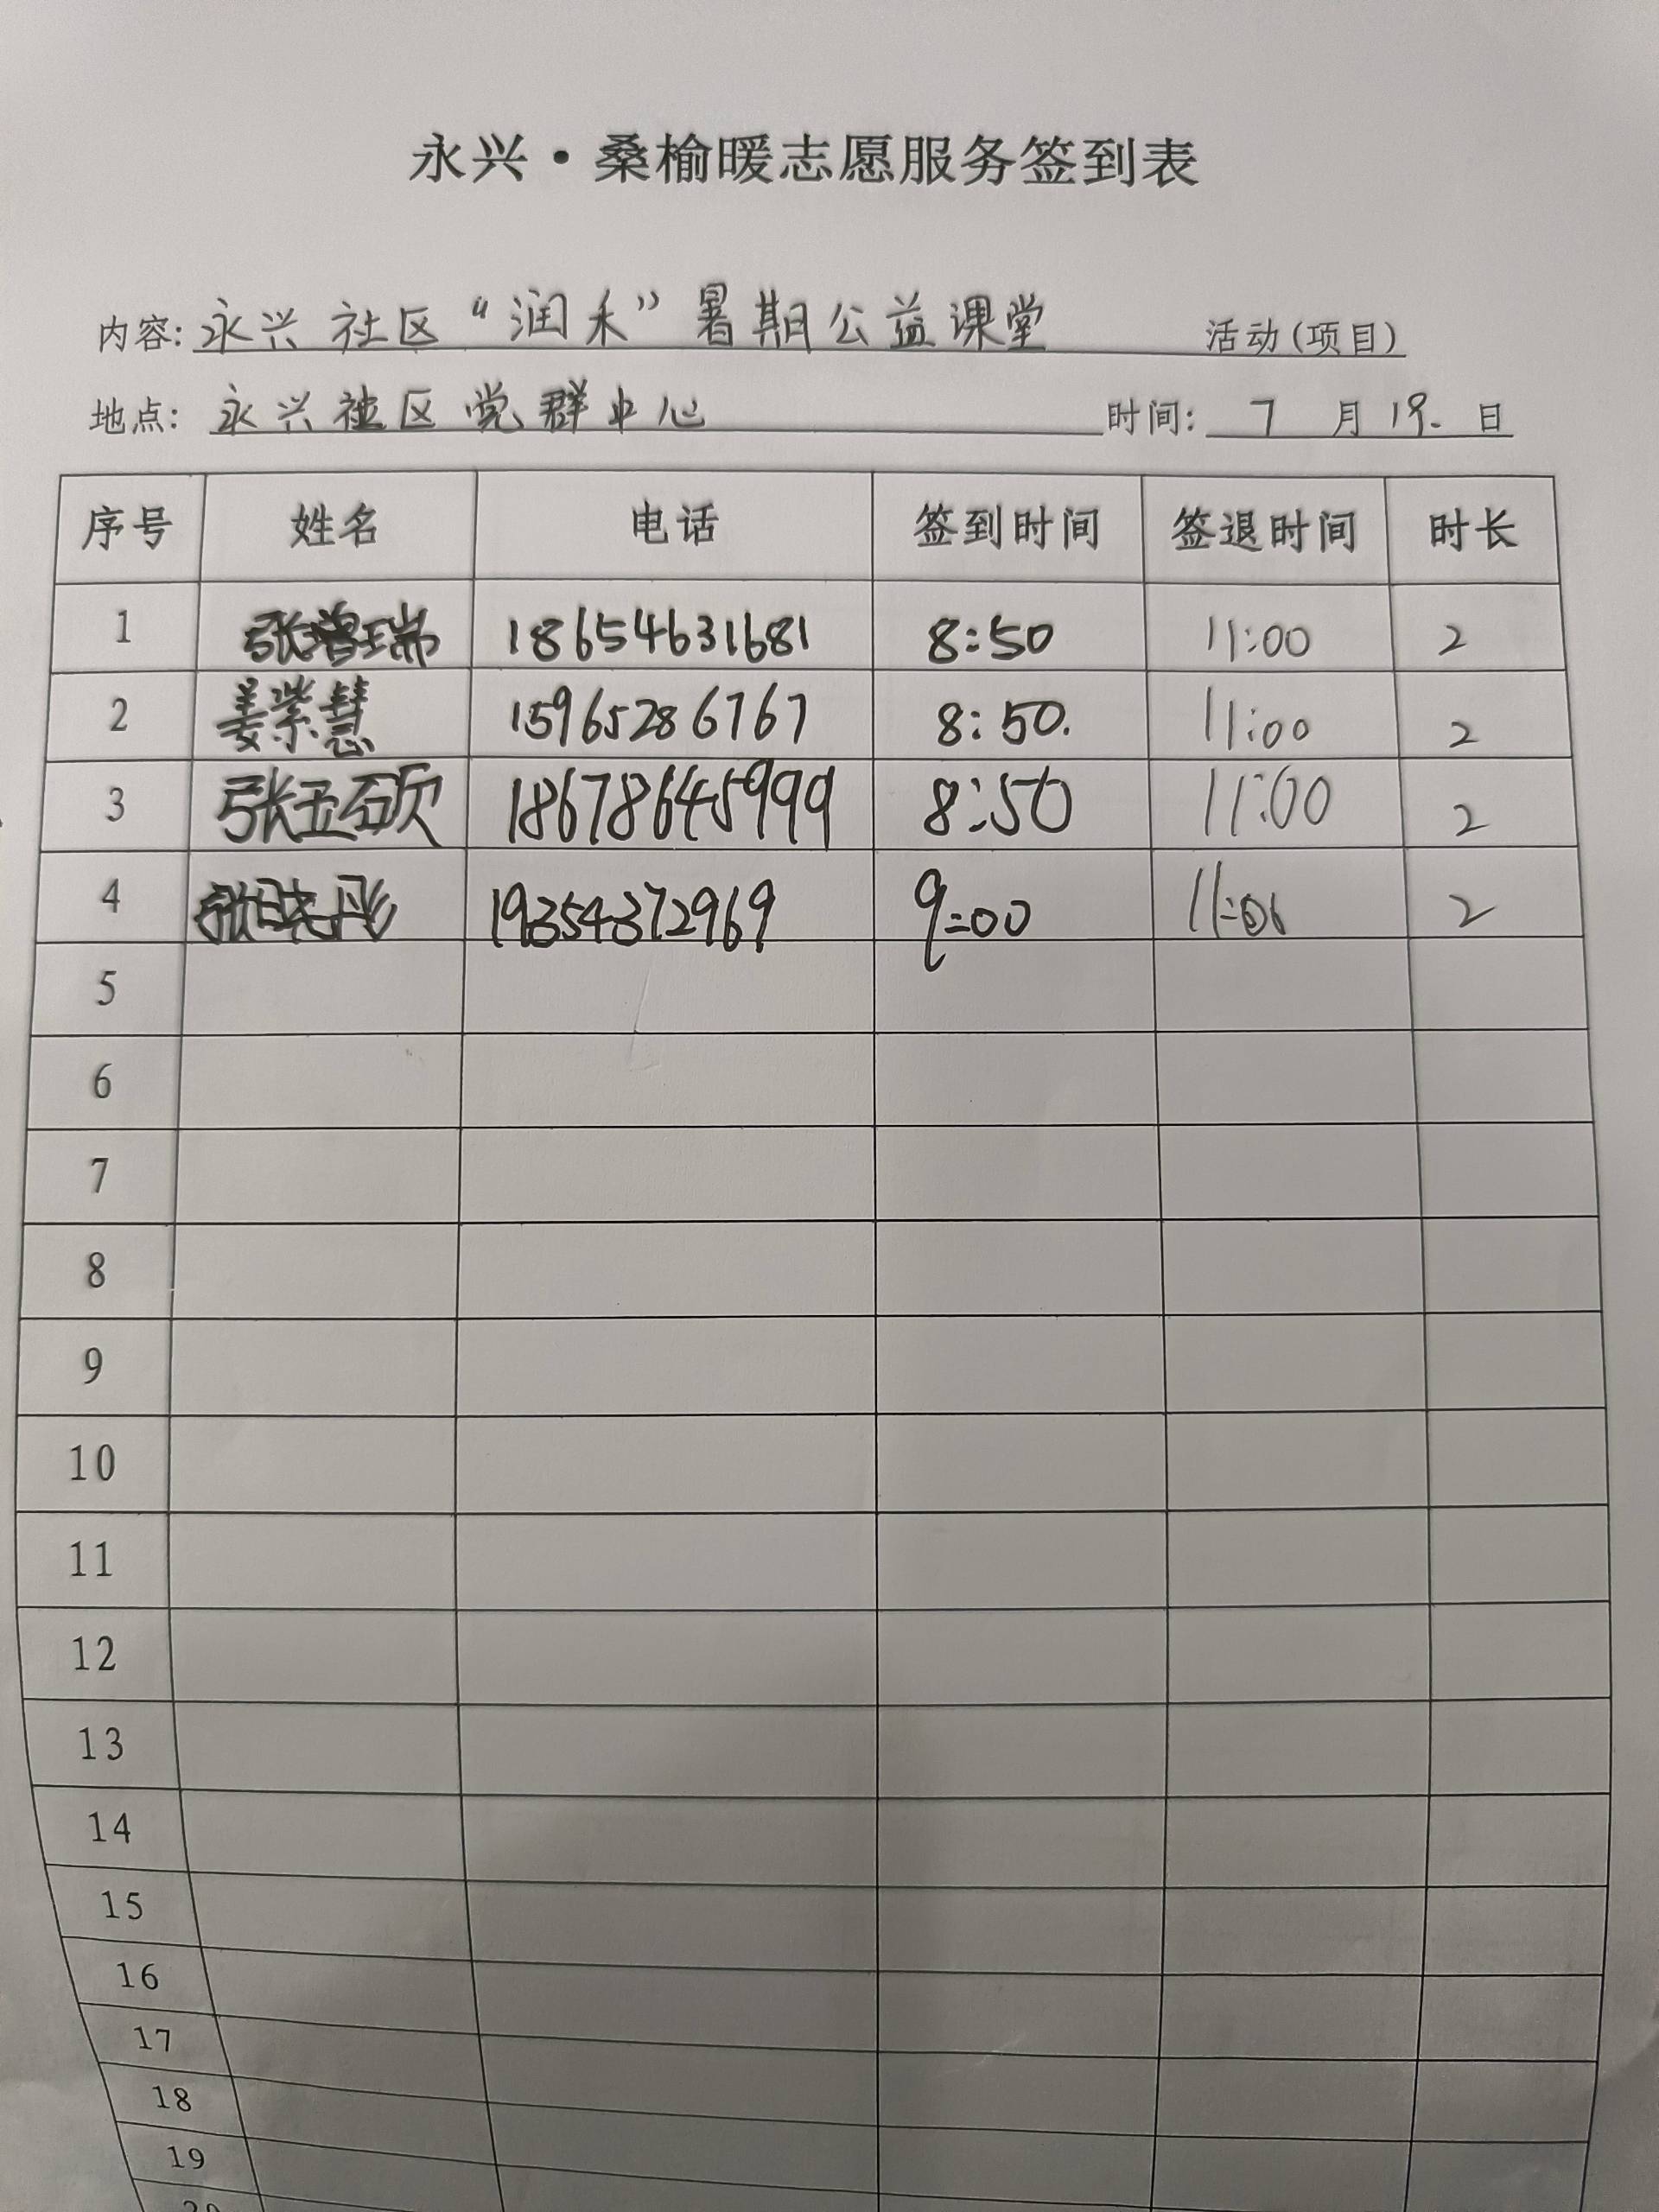 永兴·桑榆暖志愿服务签到表
内容: 永兴社区“润禾”暑期公益课堂 活动(项目)
地点: 永兴社区党群中心 时间: 7月19.日
序号 姓名 电话 签到时间 签退时间 时长
1 张增瑞 18654631681 8:50 11:00 2
2 姜紫慧 15965286767 8:50. 11:00 2
3 张玉硕 18678645999 8:50 11:00 2
4 张晓彤 19354372969 9:00 2
5
6
7
8
9
10
11
12
13
14
15
16
17
18
19
20